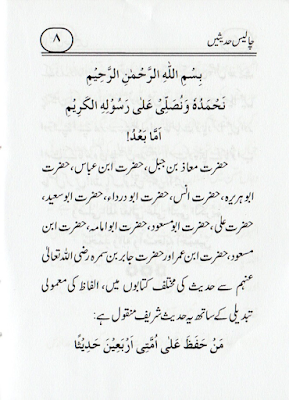 چالیس حدیثیں
۸
بِسْمِ اللهِ الرَّحْمٰنِ الرَّحِيْمِ
نَحْمَدُهٗ وَنُصَلِّيْ عَلٰى رَسُوْلِهِ الْكَرِيْمِ
اَمَّا بَعْدُ!
حضرت معاذ بن جبل، حضرت ابن عباس، حضرت
ابو ہریرہ، حضرت انس، حضرت ابو درداء، حضرت ابو سعید،
حضرت علی، حضرت ابو مسعود، حضرت ابو امامہ، حضرت ابن
مسعود، حضرت ابن عمر اور حضرت جابر بن سمرہ رضی اللہ تعالیٰ
عنہم سے حدیث کی مختلف کتابوں میں، الفاظ کی معمولی
تبدیلی کے ساتھ یہ حدیث شریف منقول ہے:
مَنْ حَفِظَ عَلٰى اُمَّتِيْ اَرْبَعِيْنَ حَدِيْثًا